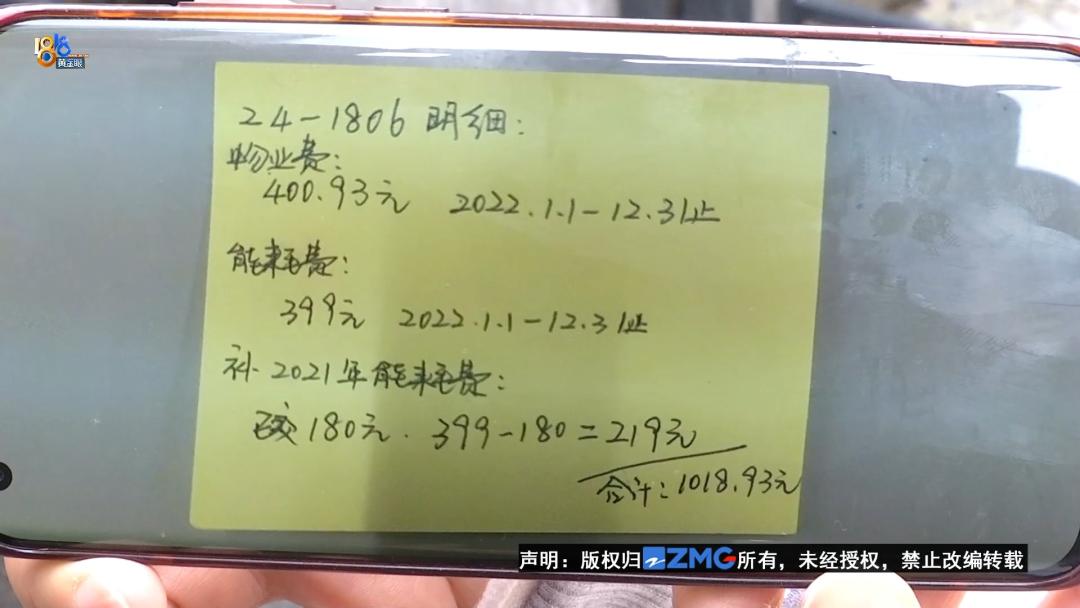 1818
黄金眼
24-1806 明细:
物业费:
400.93元 2022.1.1-12.31止
能耗费:
399元 2022.1.1-12.31止
补2021年能耗费:
已交180元. 399-180=219元
合计:1018.93元
声明:版权归ZMG所有,未经授权,禁止改编转载